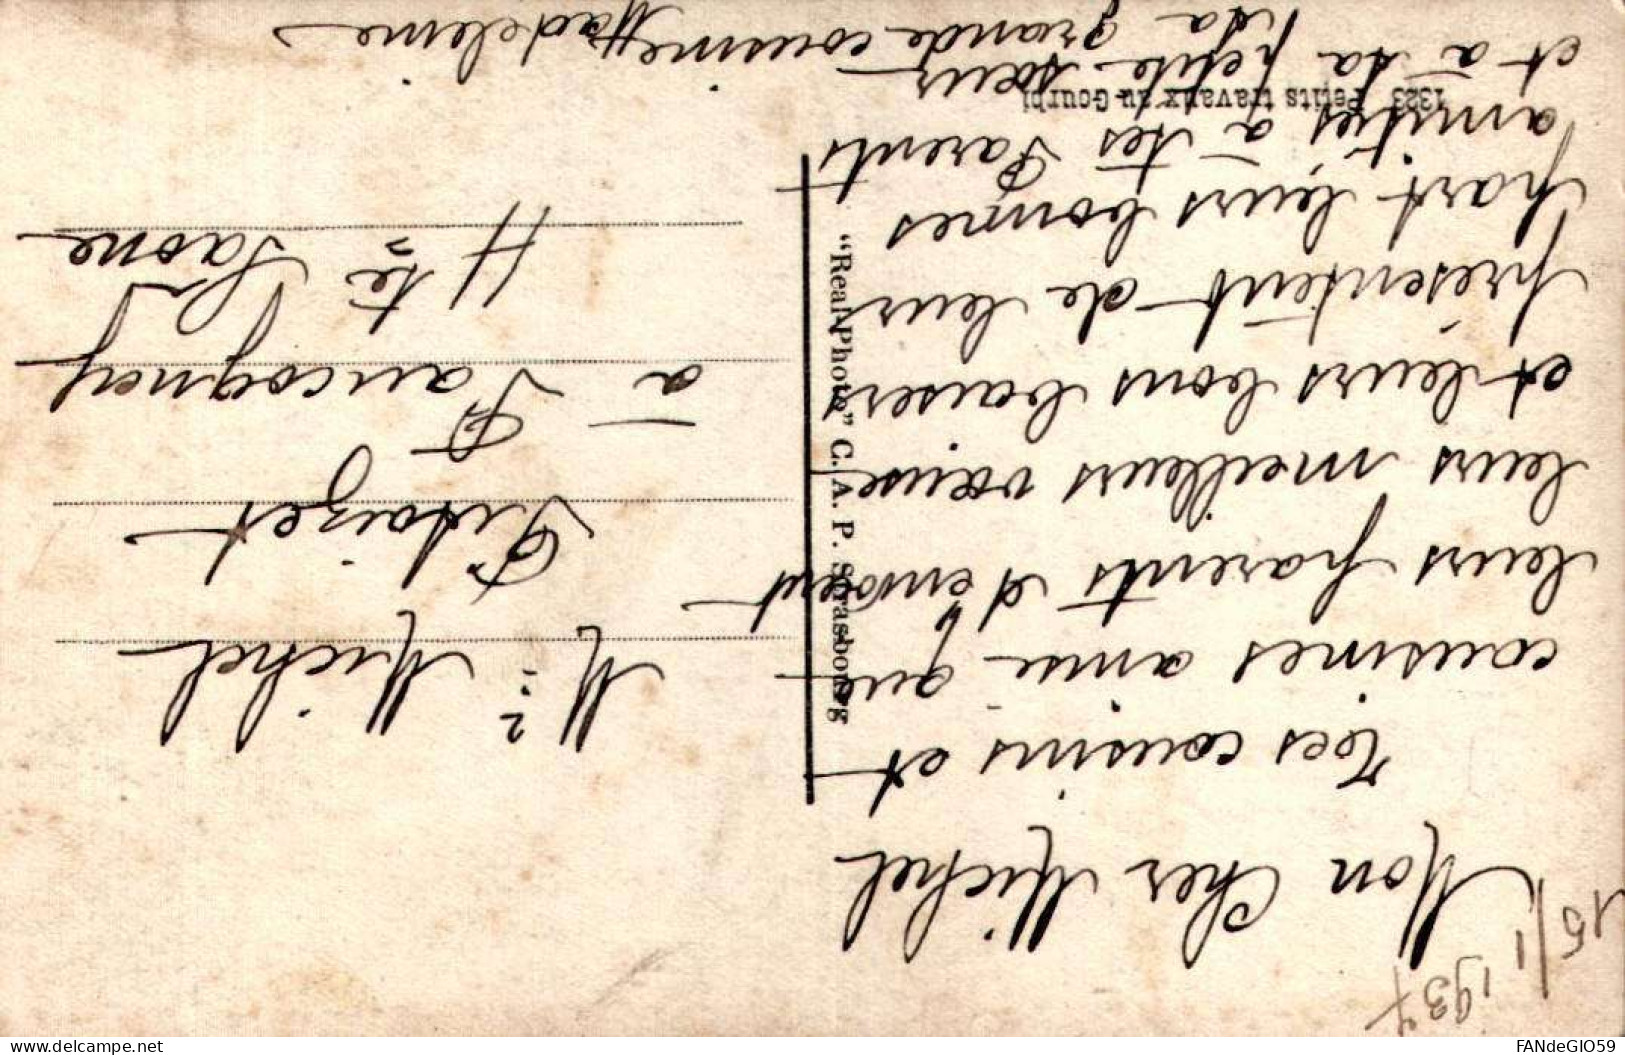 15/1 1937
Mon Cher Michel
Tes cousins et
cousines ainsi que
leurs parents t'envoient
leurs meilleurs vœux
et leurs bons baisers
présentent de leur
part leurs bonnes
amitiés à tes Parents
et à ta petite sœur
ta grande cousine Madeleine
1323 Petits travaux au Gourbi
"Real-Photo" C. A. P. Strasbourg
Mr Michel
à Faucogney
Hte Saône
www.delcampe.net
FANdeGIO59